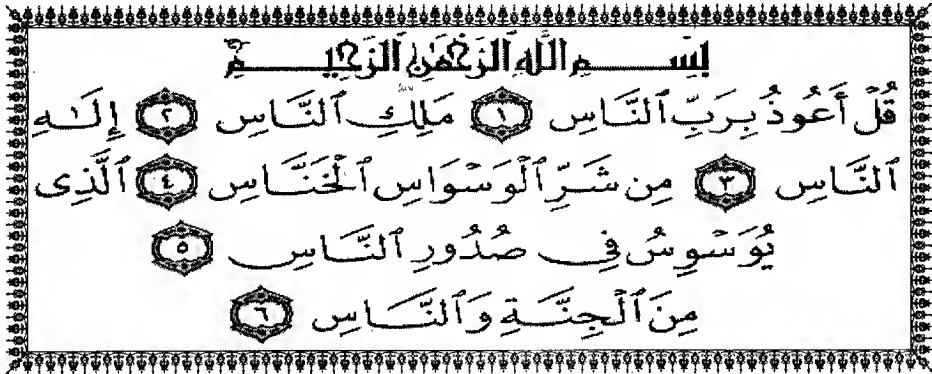 بِسْمِ اللَّهِ الرَّحْمَٰنِ الرَّحِيمِ
قُلْ أَعُوذُ بِرَبِّ ٱلنَّاسِ ١ مَلِكِ ٱلنَّاسِ ٢ إِلَٰهِ
ٱلنَّاسِ ٣ مِن شَرِّ ٱلْوَسْوَاسِ ٱلْخَنَّاسِ ٤ ٱلَّذِى
يُوَسْوِسُ فِى صُدُورِ ٱلنَّاسِ ٥
مِنَ ٱلْجِنَّةِ وَٱلنَّاسِ ٦